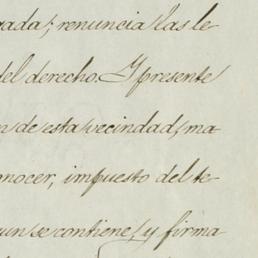 gada; renuncia las le
del derecho. Y presente
n de esta vecindad, ma
onocer, impuesto del te
un se contiene, y firma